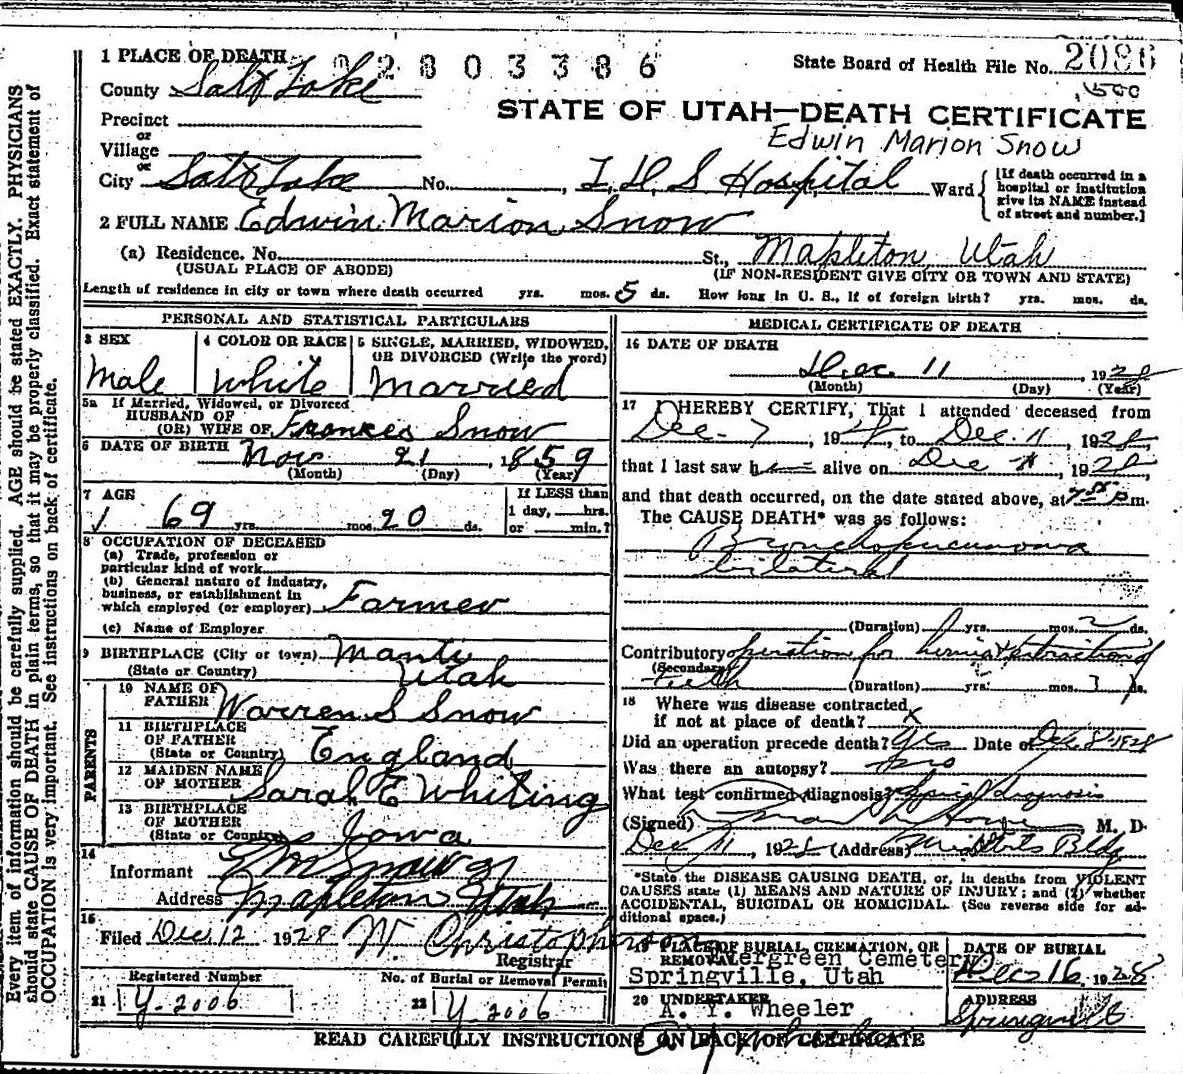 1 PLACE OF DEATH 0 2 8 0 3 3 8 6 State Board of Health File No. 2086
County Salt Lake 1500
STATE OF UTAH—DEATH CERTIFICATE
Precinct
or
Village
Edwin Marion Snow
or
City Salt Lake No. , L. D. S Hospital Ward
[If death occurred in a
hospital or institution
give its NAME instead
of street and number.]
2 FULL NAME Edwin Marion Snow
(a) Residence. No. St., Mapleton Utah
(USUAL PLACE OF ABODE) (IF NON-RESIDENT GIVE CITY OR TOWN AND STATE)
Length of residence in city or town where death occurred yrs. mos. 5 ds. How long in U. S., if of foreign birth? yrs. mos. ds.
PERSONAL AND STATISTICAL PARTICULARS
3 SEX 4 COLOR OR RACE 5 SINGLE, MARRIED, WIDOWED,
OR DIVORCED (Write the word)
Male White Married
5a If Married, Widowed, or Divorced
HUSBAND OF
(OR) WIFE OF Frances Snow
6 DATE OF BIRTH Nov 21, 1859
(Month) (Day) (Year)
7 AGE If LESS than
69 yrs. mos. 20 ds. 1 day, hrs.
or min.?
8 OCCUPATION OF DECEASED
(a) Trade, profession or
particular kind of work
(b) General nature of industry,
business, or establishment in
which employed (or employer) Farmer
(c) Name of Employer
9 BIRTHPLACE (City or town) Manti
(State or Country) Utah
PARENTS
10 NAME OF
FATHER Warren S Snow
11 BIRTHPLACE
OF FATHER
(State or Country) England
12 MAIDEN NAME
OF MOTHER Sarah E Whiting
13 BIRTHPLACE
OF MOTHER
(State or Country) Iowa
14
Informant E M Snow
Address Mapleton Utah
15
Filed Dec 12 1928 W. Christopherson
Registrar
Registered Number No. of Burial or Removal Permit
21 Y-2006 22 Y-2006
MEDICAL CERTIFICATE OF DEATH
16 DATE OF DEATH
Dec. 11, 1928
(Month) (Day) (Year)
17 I HEREBY CERTIFY, That I attended deceased from
Dec. 7, 1928, to Dec. 11, 1928
that I last saw alive on Dec 11, 1928
and that death occurred, on the date stated above, at 7 p m.
The CAUSE DEATH* was as follows:
Bronchopneumonia
bilateral
(Duration) yrs. mos. 2 ds.
Contributory operation for hernia & extraction of
(Secondary) teeth
(Duration) yrs. mos. 3 ds.
18 Where was disease contracted
if not at place of death? X
Did an operation precede death? Yes Date of Dec 8 1928
Was there an autopsy? no
What test confirmed diagnosis? Diagnosis
(Signed) M. D.
Dec 11, 1928 (Address) Bldg
*State the DISEASE CAUSING DEATH, or, in deaths from VIOLENT
CAUSES state (1) MEANS AND NATURE OF INJURY; and (2) whether
ACCIDENTAL, SUICIDAL OR HOMICIDAL. (See reverse side for ad-
ditional space.)
19 PLACE OF BURIAL, CREMATION, OR
REMOVAL Evergreen Cemetery
Springville, Utah
DATE OF BURIAL
Dec 16, 1928
20 UNDERTAKER
A. Y. Wheeler
A Y Wheeler
ADDRESS
Springville
READ CAREFULLY INSTRUCTIONS ON BACK OF CERTIFICATE
Every item of information should be carefully supplied. AGE should be stated EXACTLY. PHYSICIANS
should state CAUSE OF DEATH in plain terms, so that it may be properly classified. Exact statement of
OCCUPATION is very important. See instructions on back of certificate.